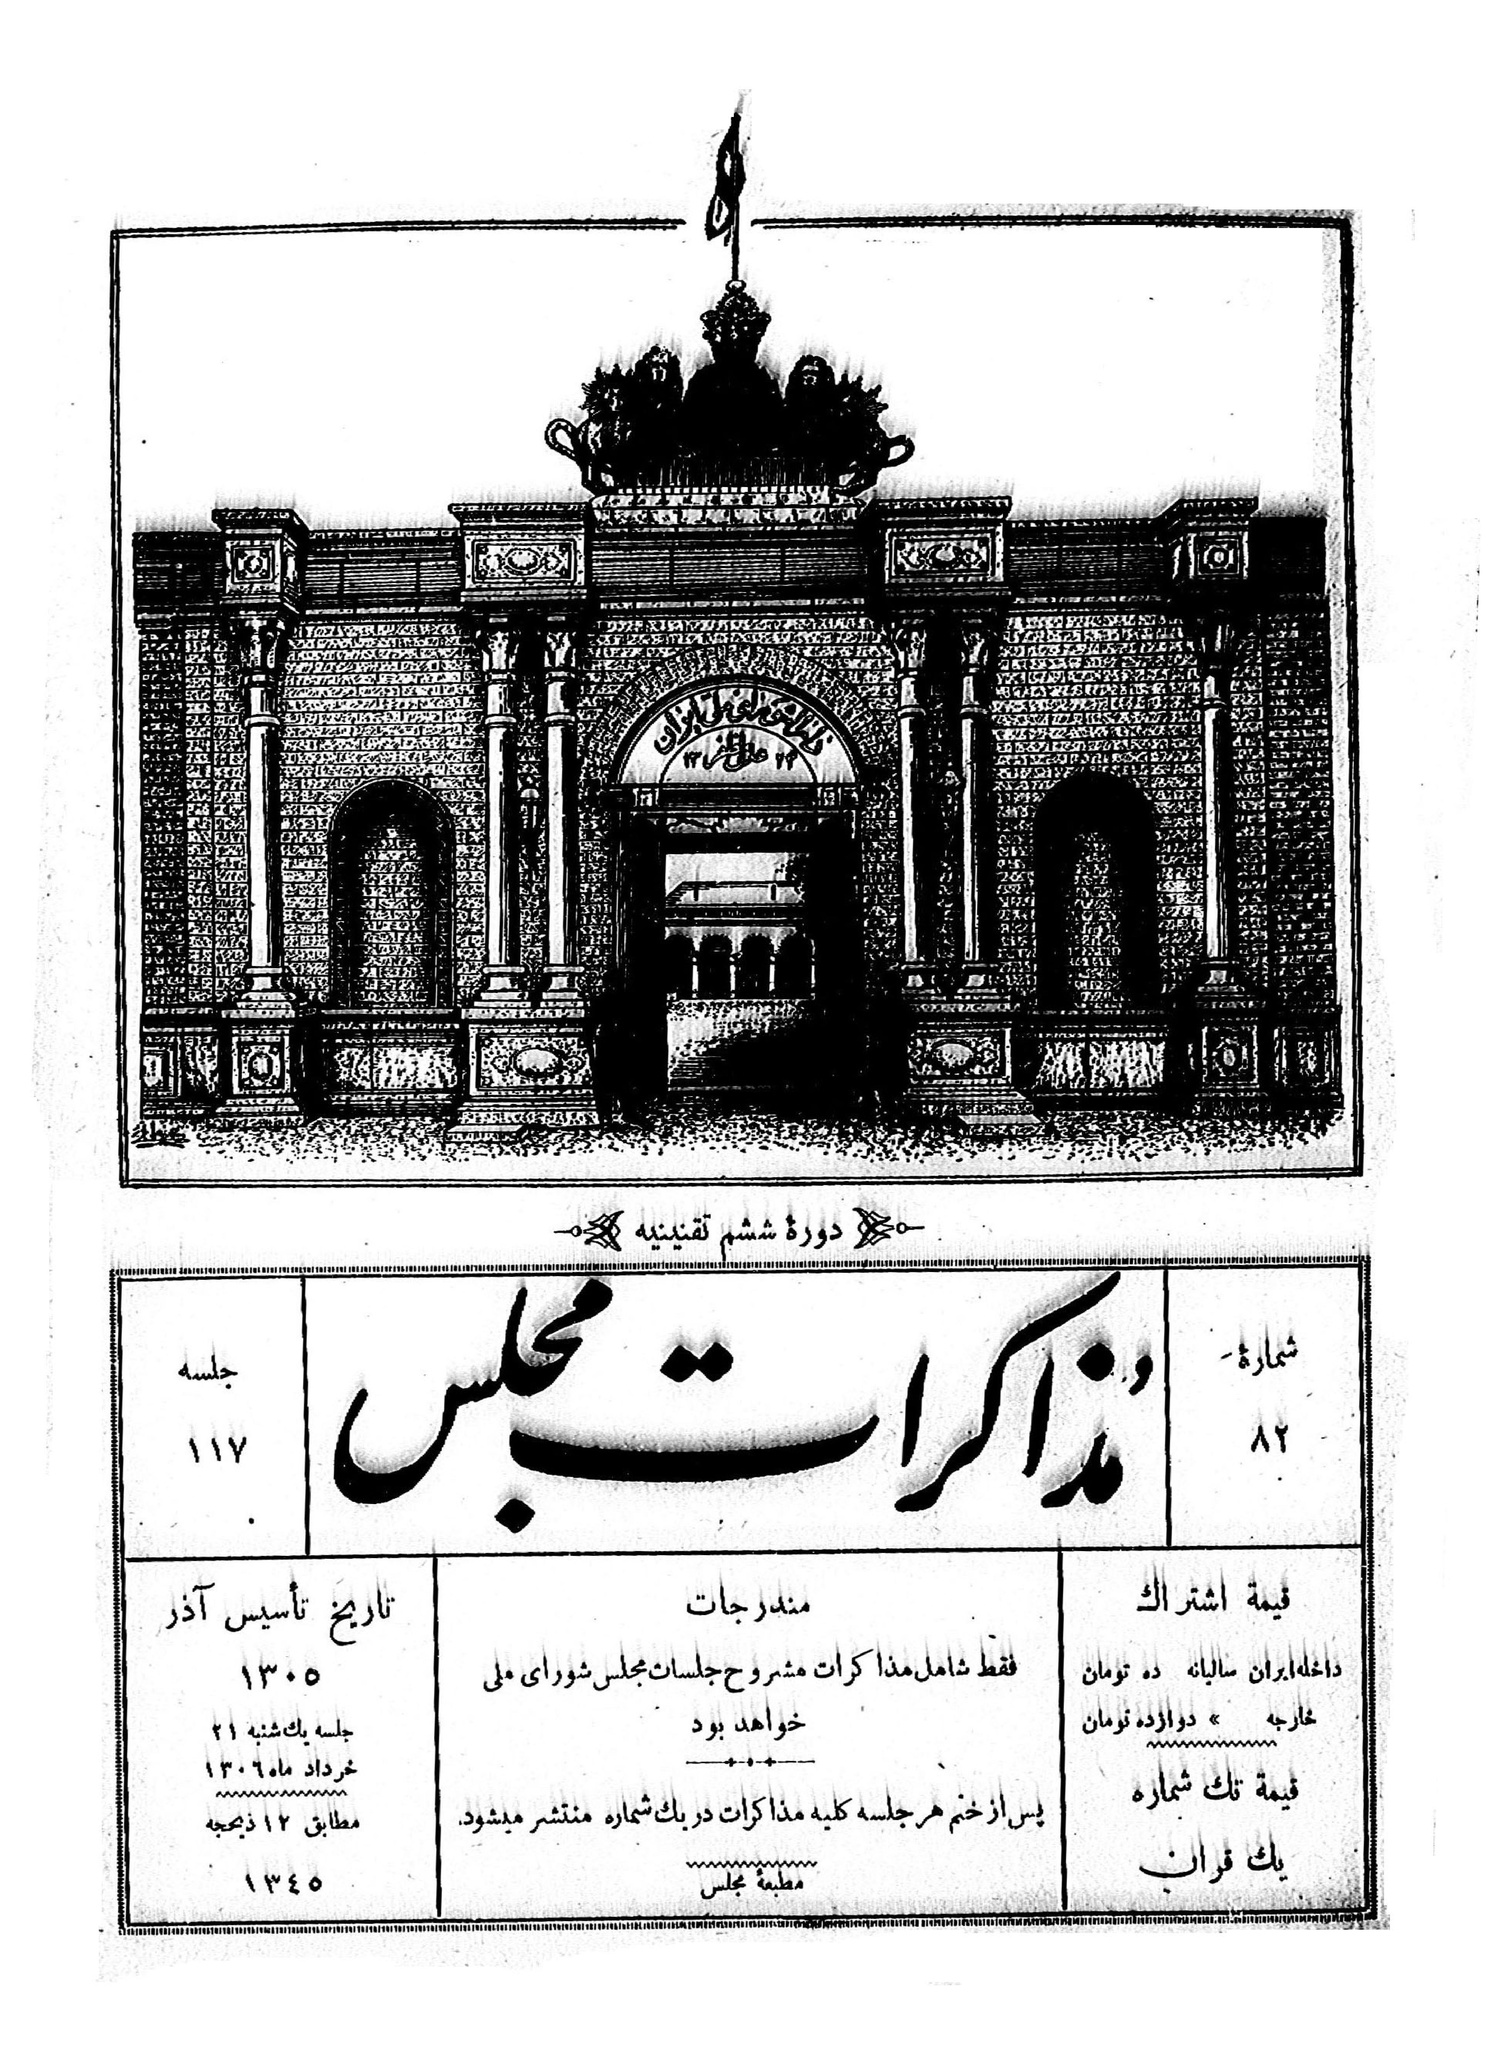 دار الشورای ملی ایران
عدل مظفر
دورهٔ ششم تقنینیه
شمارهٔ
۸۲
مذاکرات مجلس
جلسه
۱۱۷
قیمة اشتراك
داخله ایران سالیانه ده تومان
خارجه » دوازده تومان
قیمة تك شماره
يك قران
مندرجات
فقط شامل مذاکرات مشروح جلسات مجلس شورای ملی
خواهد بود
پس از ختم هر جلسه کلیه مذاکرات در يك شماره منتشر میشود.
مطبعهٔ مجلس
تاریخ تأسیس آذر
۱۳۰۵
جلسه يك شنبه ۲۱
خرداد ماه ۱۳۰۶
مطابق ۱۲ ذیحجه
۱۳٤٥